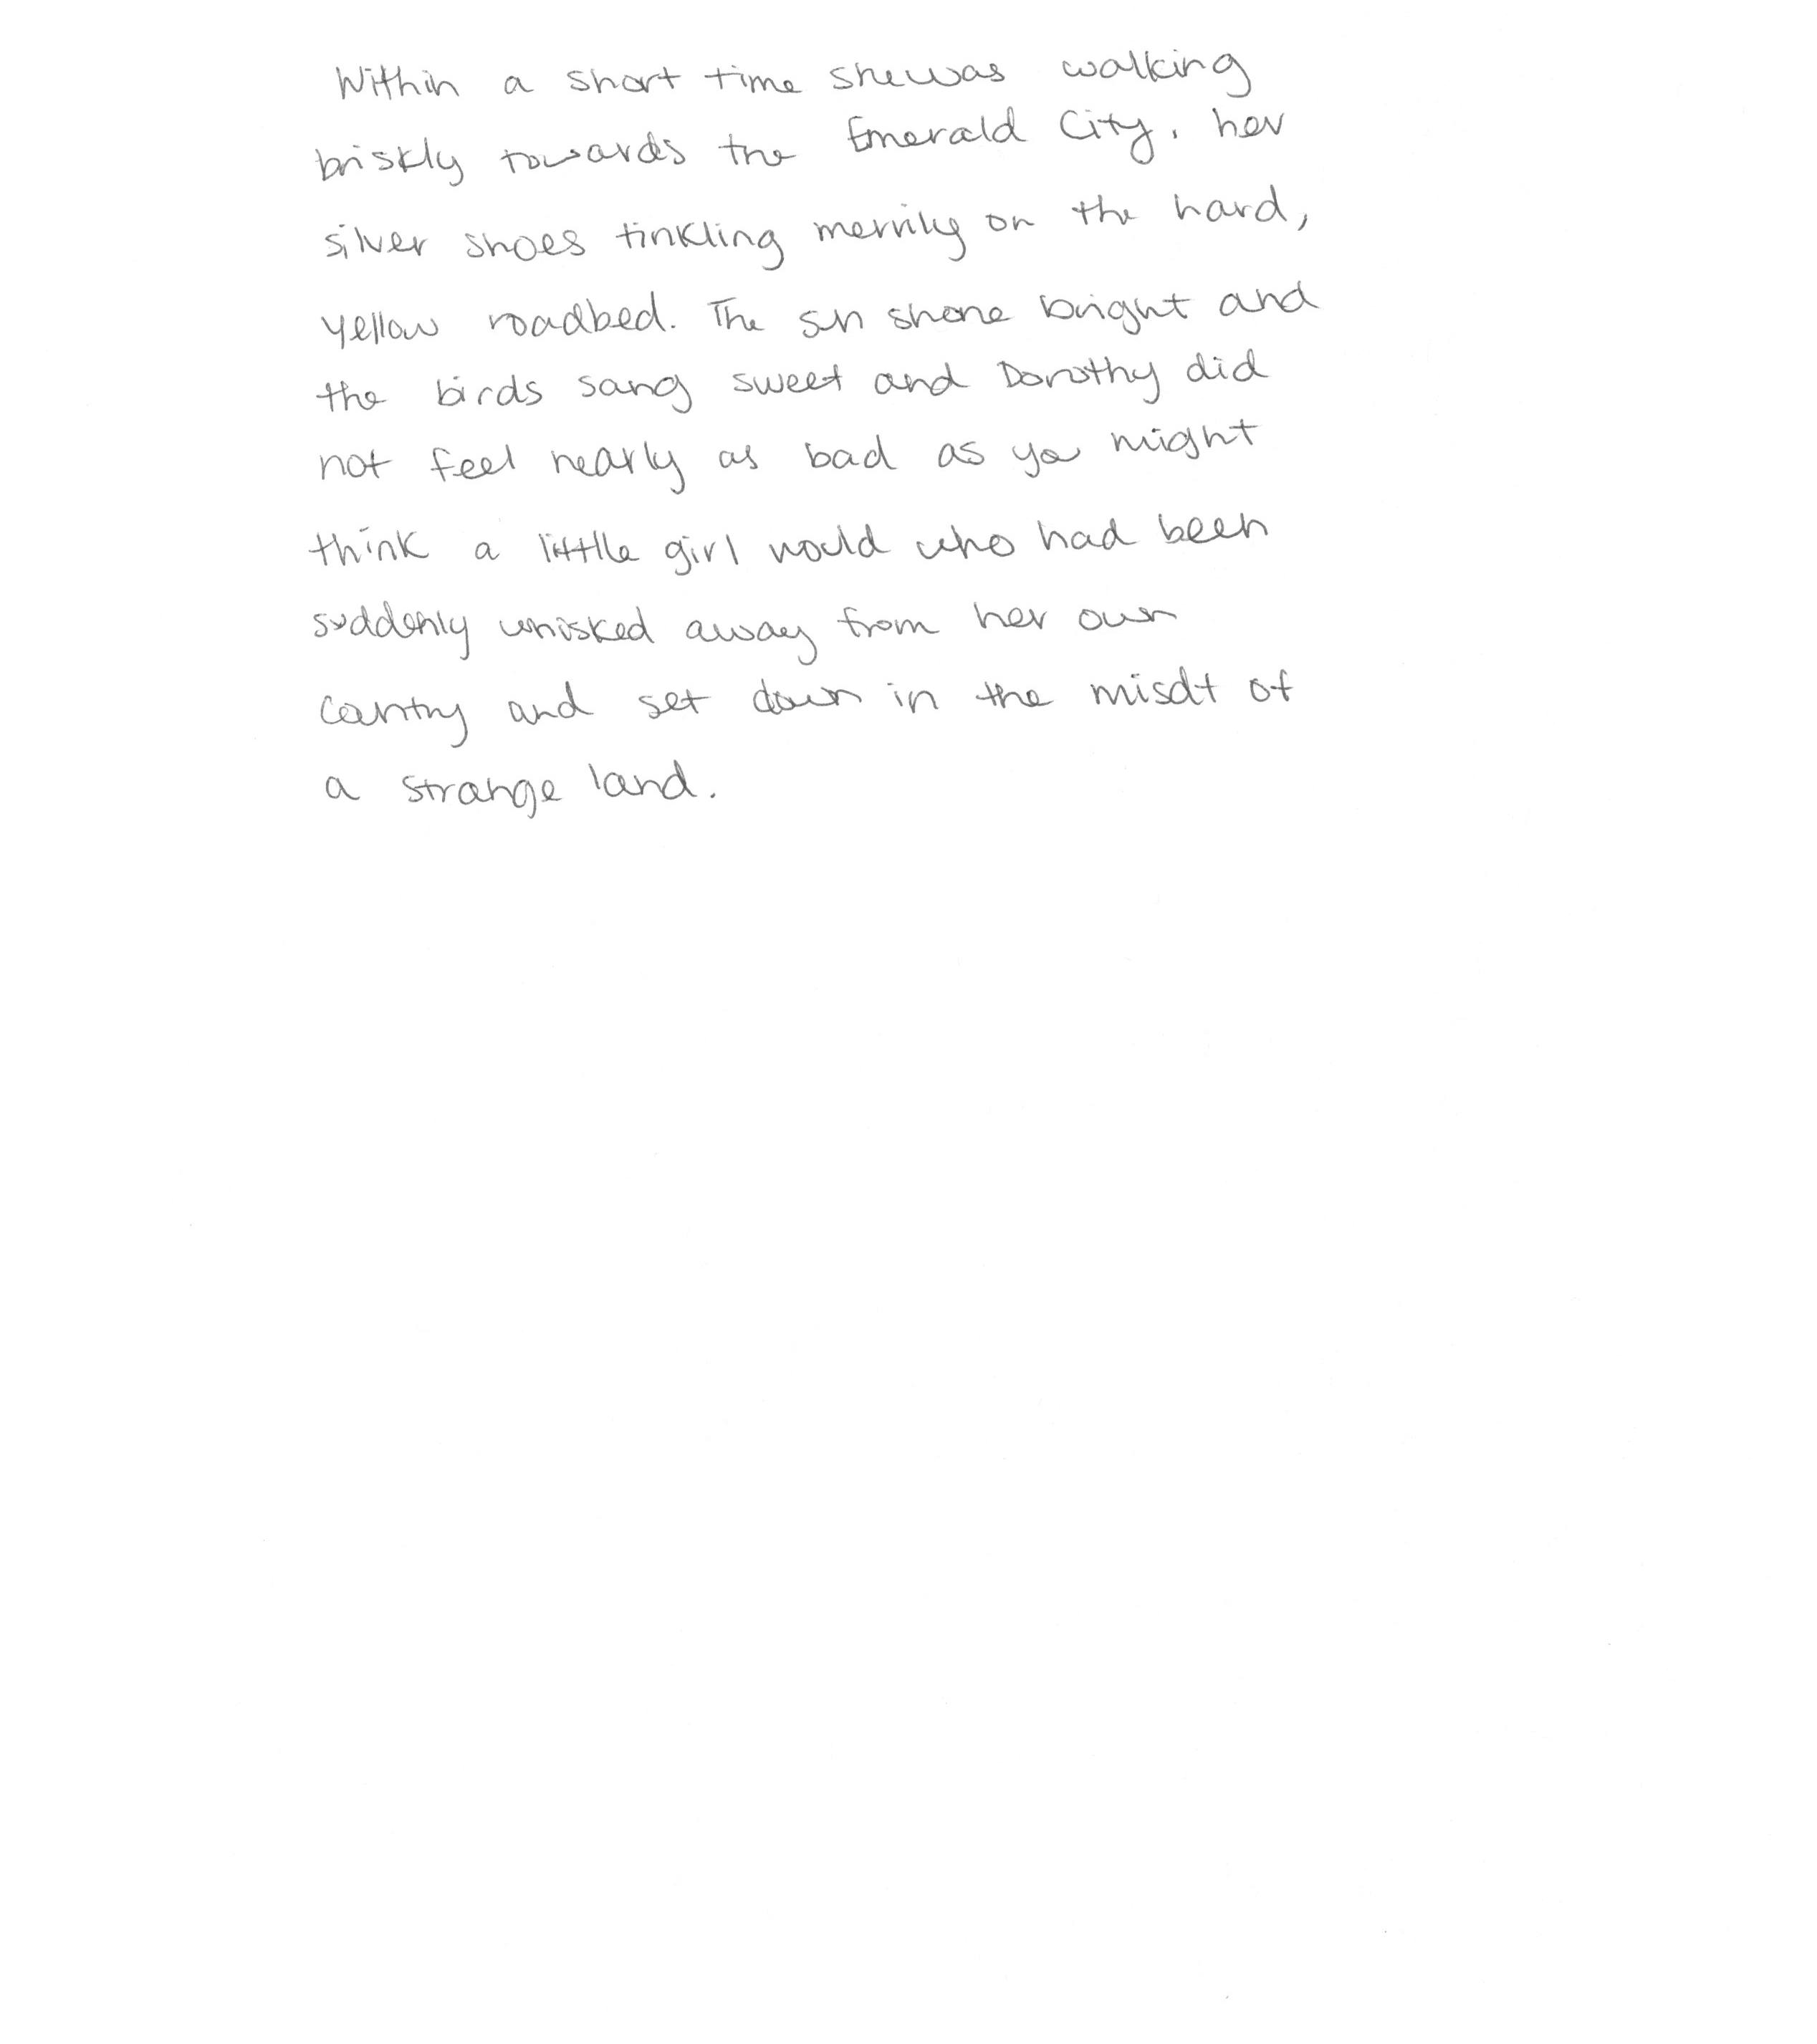 Within a short time she was walking
briskly towards the Emerald City, her
silver shoes tinkling merrily on the hard,
yellow roadbed. The sun shone bright and
the birds sang sweet and Dorothy did
not feel nearly as bad as you might
think a littlle girl would who had been
suddenly whisked away from her own
country and set down in the misdt of
a strange land.